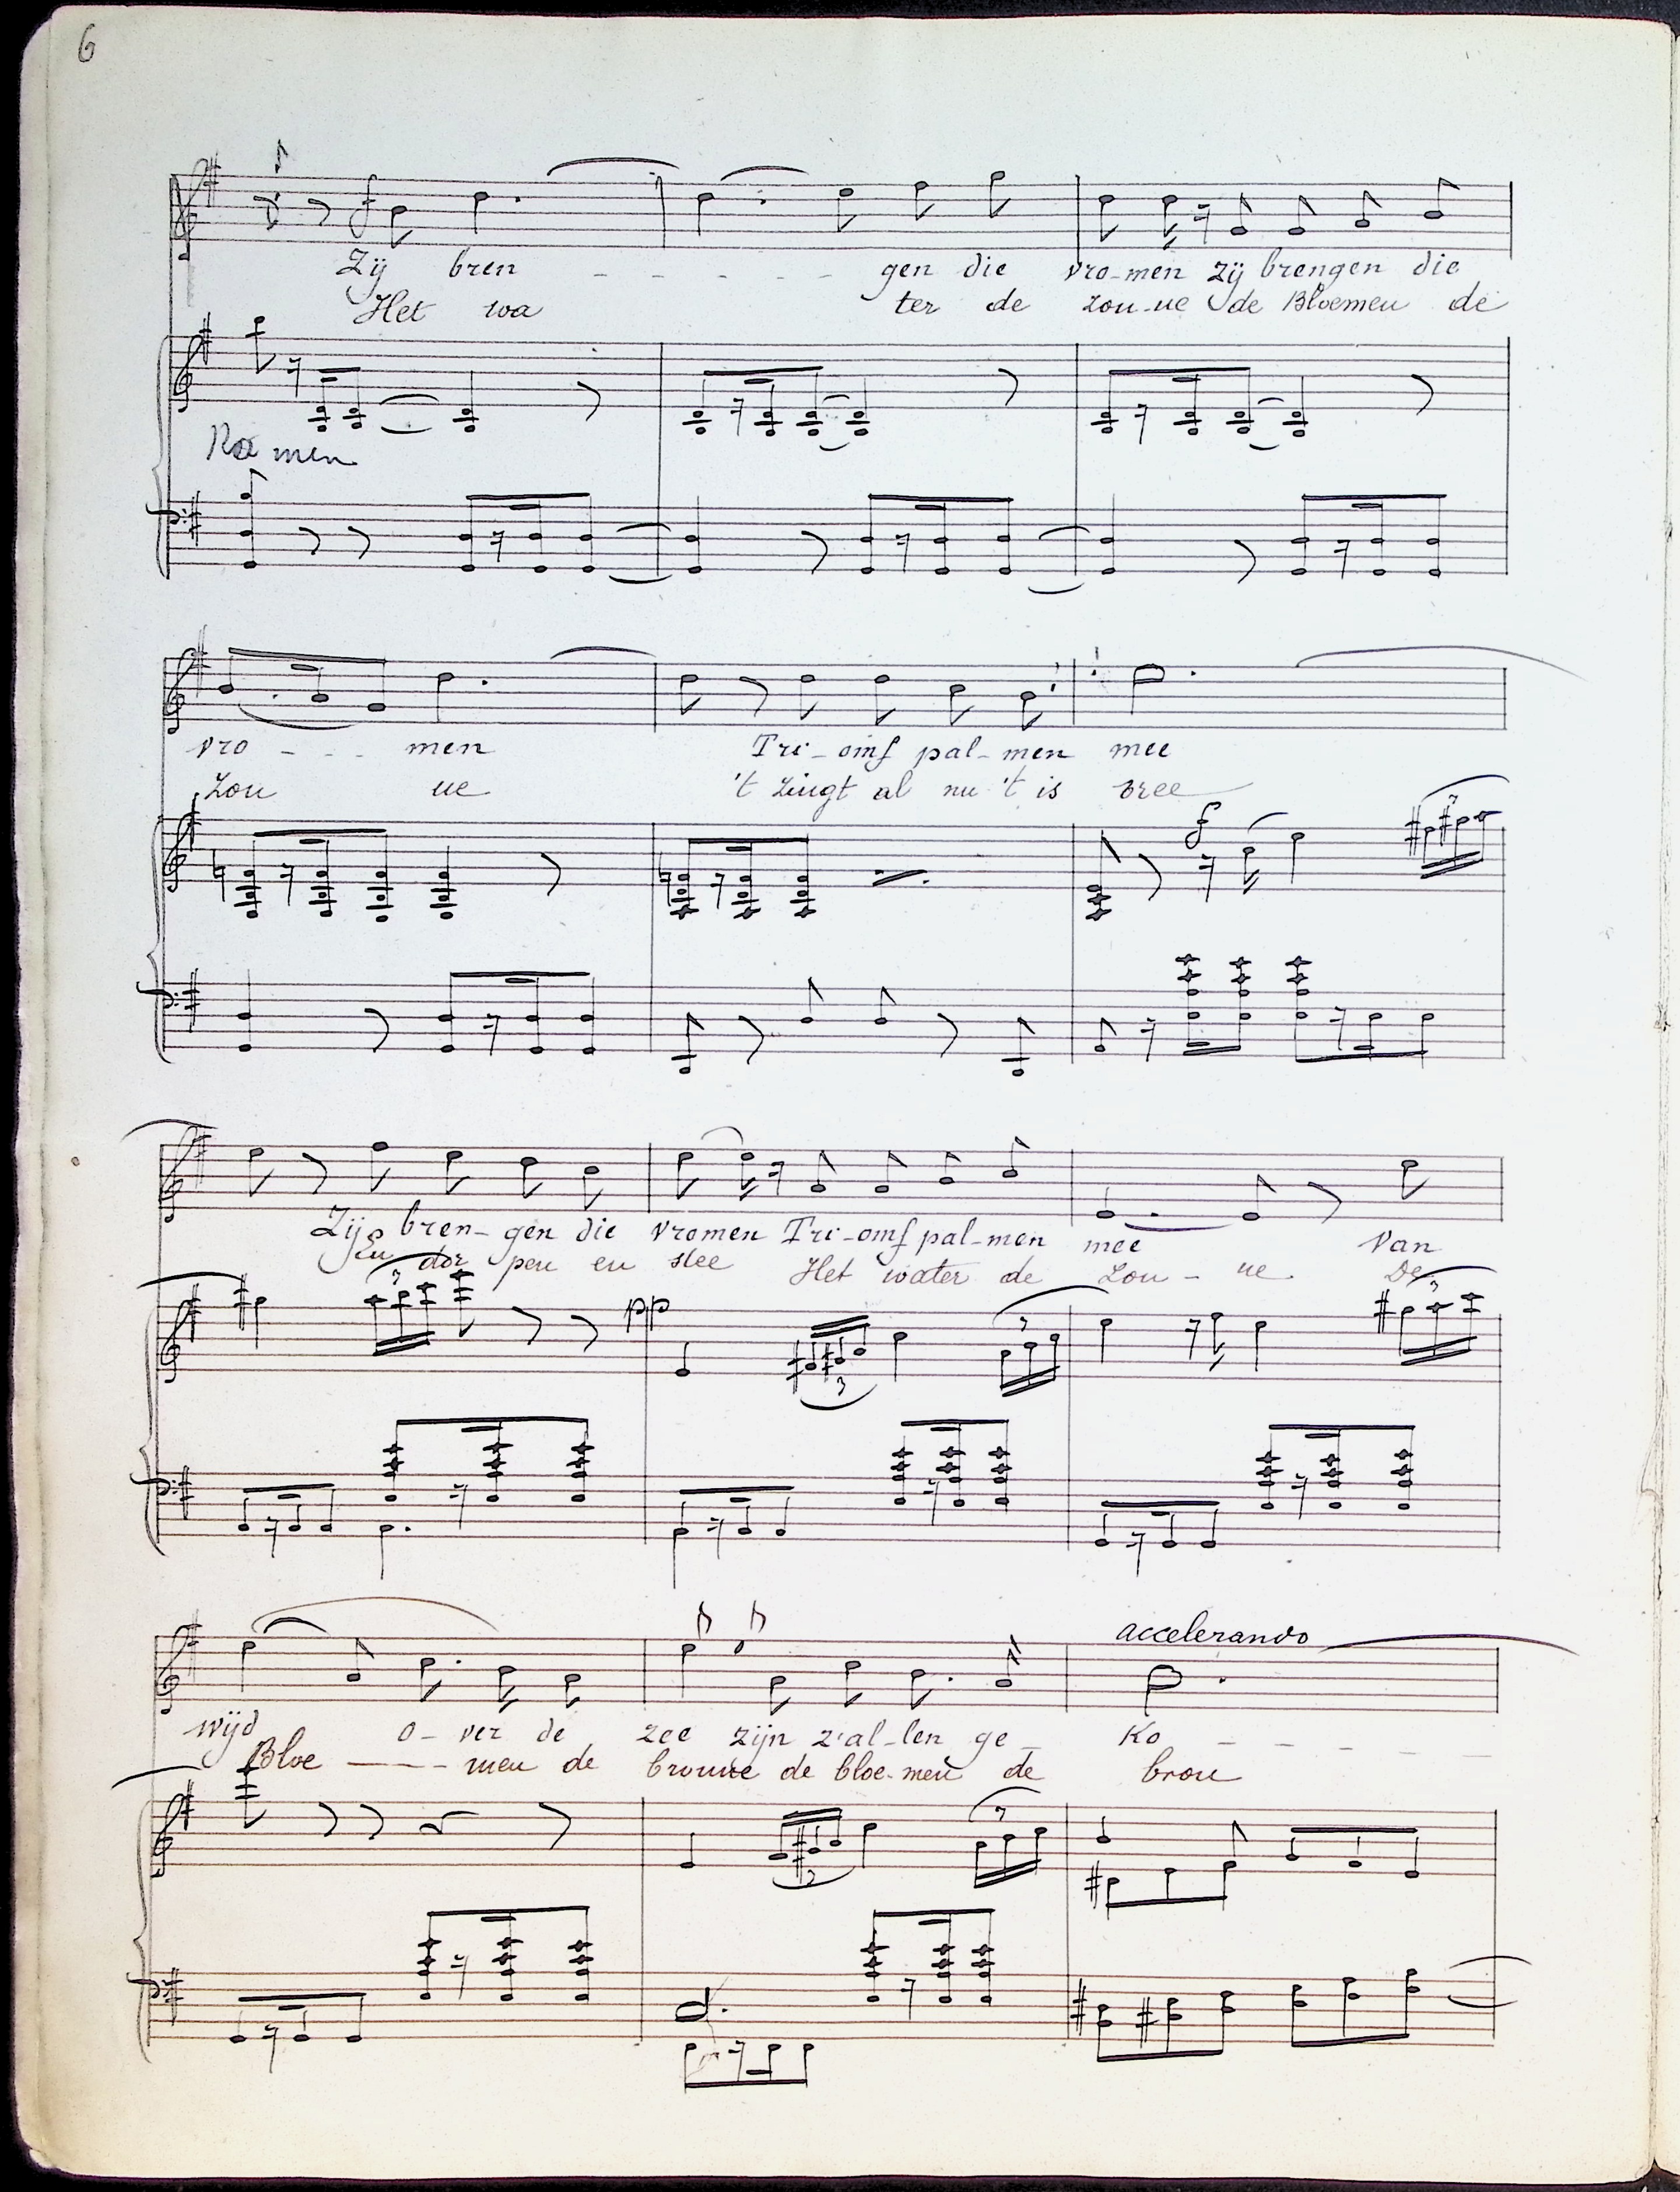 6
f
Zij bren - - - - - - gen die vro-men zij brengen die
Het wa ter de zon-ne de Bloemen de
men
vro - - - men Tri-omf pal-men mee
zon ne 't zingt al nu 't is vree
f
3
Zij bren-gen die vromen Tri-omf pal-men mee Van
En dor pen en stee Het water de zon-ne De
3 pp 3 3 3
accelerando
wijd o-ver de zee zijn z'al-len ge- ko - - - - -
Bloe - - - men de bronne de bloe-men de bron
3 3